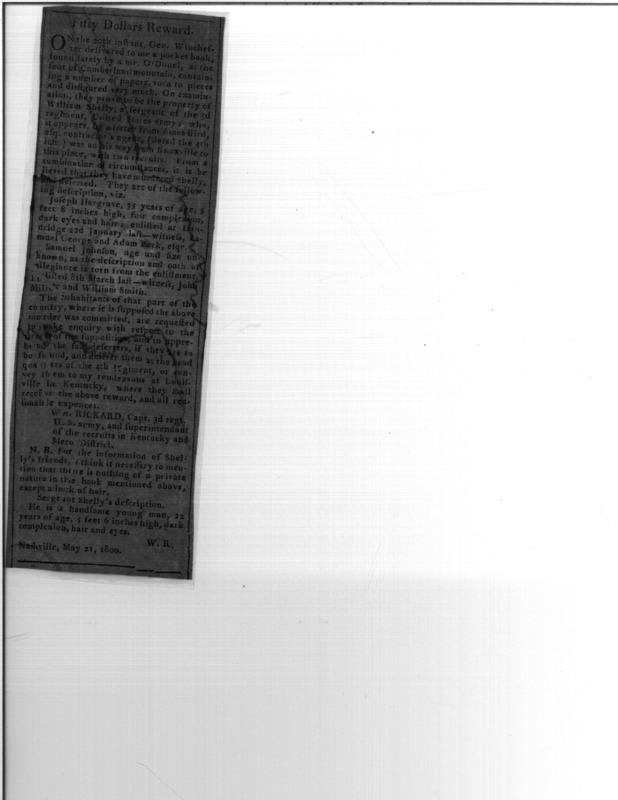 Fifty Dollars Reward.
ON the 20th inſtant, Gen. Wincheſ-
ter delivered to me a pocket book,
found lately by a mr. O'Donel, at the
foot of Cumberland mountain, contain-
ing a number of papers, torn to pieces
and disfigured very much. On examin-
ation, they prove to be the property of
William Shelly, a ſergeant of the 3d
regiment, United States army; who,
it appears, by a letter from Amos Bird,
eſq. contractor's agent, (dated the 4th
inſt.) was on his way from Knoxville to
this place, with two recruits. From a
combination of circumſtances, it is be-
lieved that they have murdered Shelly,
and deſerted. They are of the follow-
ing deſcription, viz.
Joſeph Hargrave, 35 years of age, 5
feet 8 inches high, fair complexion,
dark eyes and hair; enliſted at
dridge 22d January laſt—witneſs,
muel George and Adam Peck, eſqr.
Samuel Johnſon, age and ſize un-
known, as the deſcription and oath of
allegiance is torn from the enliſtment,
liſted 8th March laſt—witneſs, John
and William Smith.
The inhabitants of that part of the
country, where it is ſuppoſed the above
murder was committed, are requeſted
to make enquiry with reſpect to the
of the ſuppoſition, and to appre-
hend the ſaid deſerters, if they are to
be found, and deliver them at the head
quarters of the 4th regiment, or con-
vey them to my rendezvous at Louiſ-
ville in Kentucky, where they ſhall
receive the above reward, and all rea-
ſonable expences.
Wm. RICKARD, Capt. 3d regt.
U. S. army, and ſuperintendant
of the recruits in Kentucky and
Mero Diſtrict.
N. B. For the information of Shel-
ly's friends, I think it neceſſary to men-
tion that there is nothing of a private
nature in the book mentioned above,
except a lock of hair.
Sergeant Shelly's deſcription.
He is a handſome young man, 22
years of age, 5 feet 6 inches high, dark
complexion, hair and eyes.
W. R.
Naſhville, May 21, 1800.